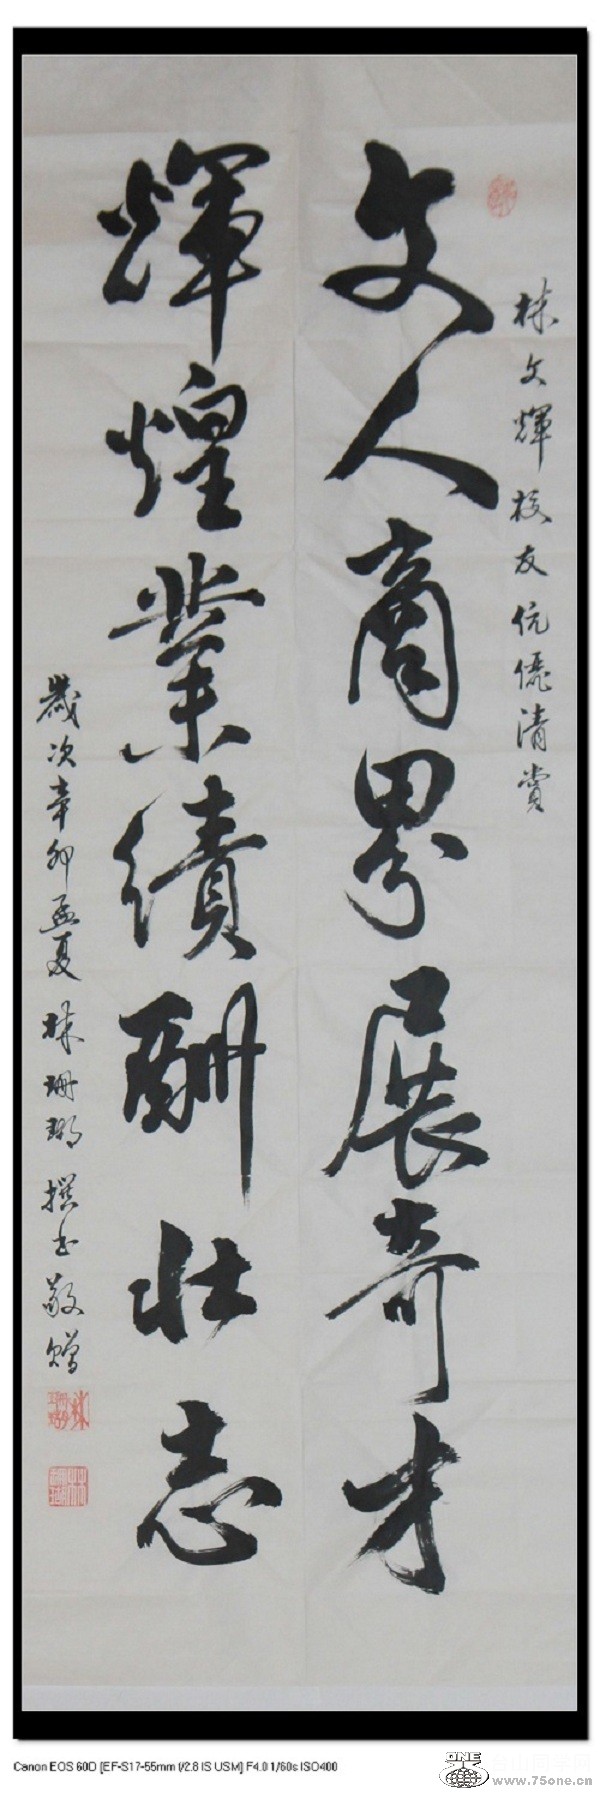 林文輝校友伉儷清賞
文人商界展奇才
輝煌業績酬壯志
歲次辛卯孟夏林珊瑚撰书敬贈
Canon EOS 60D [EF-S17-55mm f/2.8 IS USM] F4.0 1/60s ISO400
ONE
台山同学网
www.75one.cn